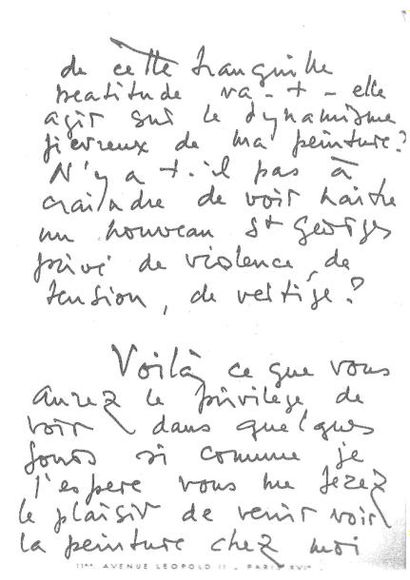 de cette tranquille
beatitude va-t-elle
agir sur le dynamisme
fievreux de ma peinture?
N'y a t-il pas à
craindre de voir naitre
un nouveau St Georges
privé de violence, de
tension, de vertige?
Voilà ce que vous
aurez le privilege de
voir dans quelques
jours si comme je
l'espere vous me ferez
le plaisir de venir voir
la peinture chez moi
11bis AVENUE LEOPOLD II - PARIS XVIe